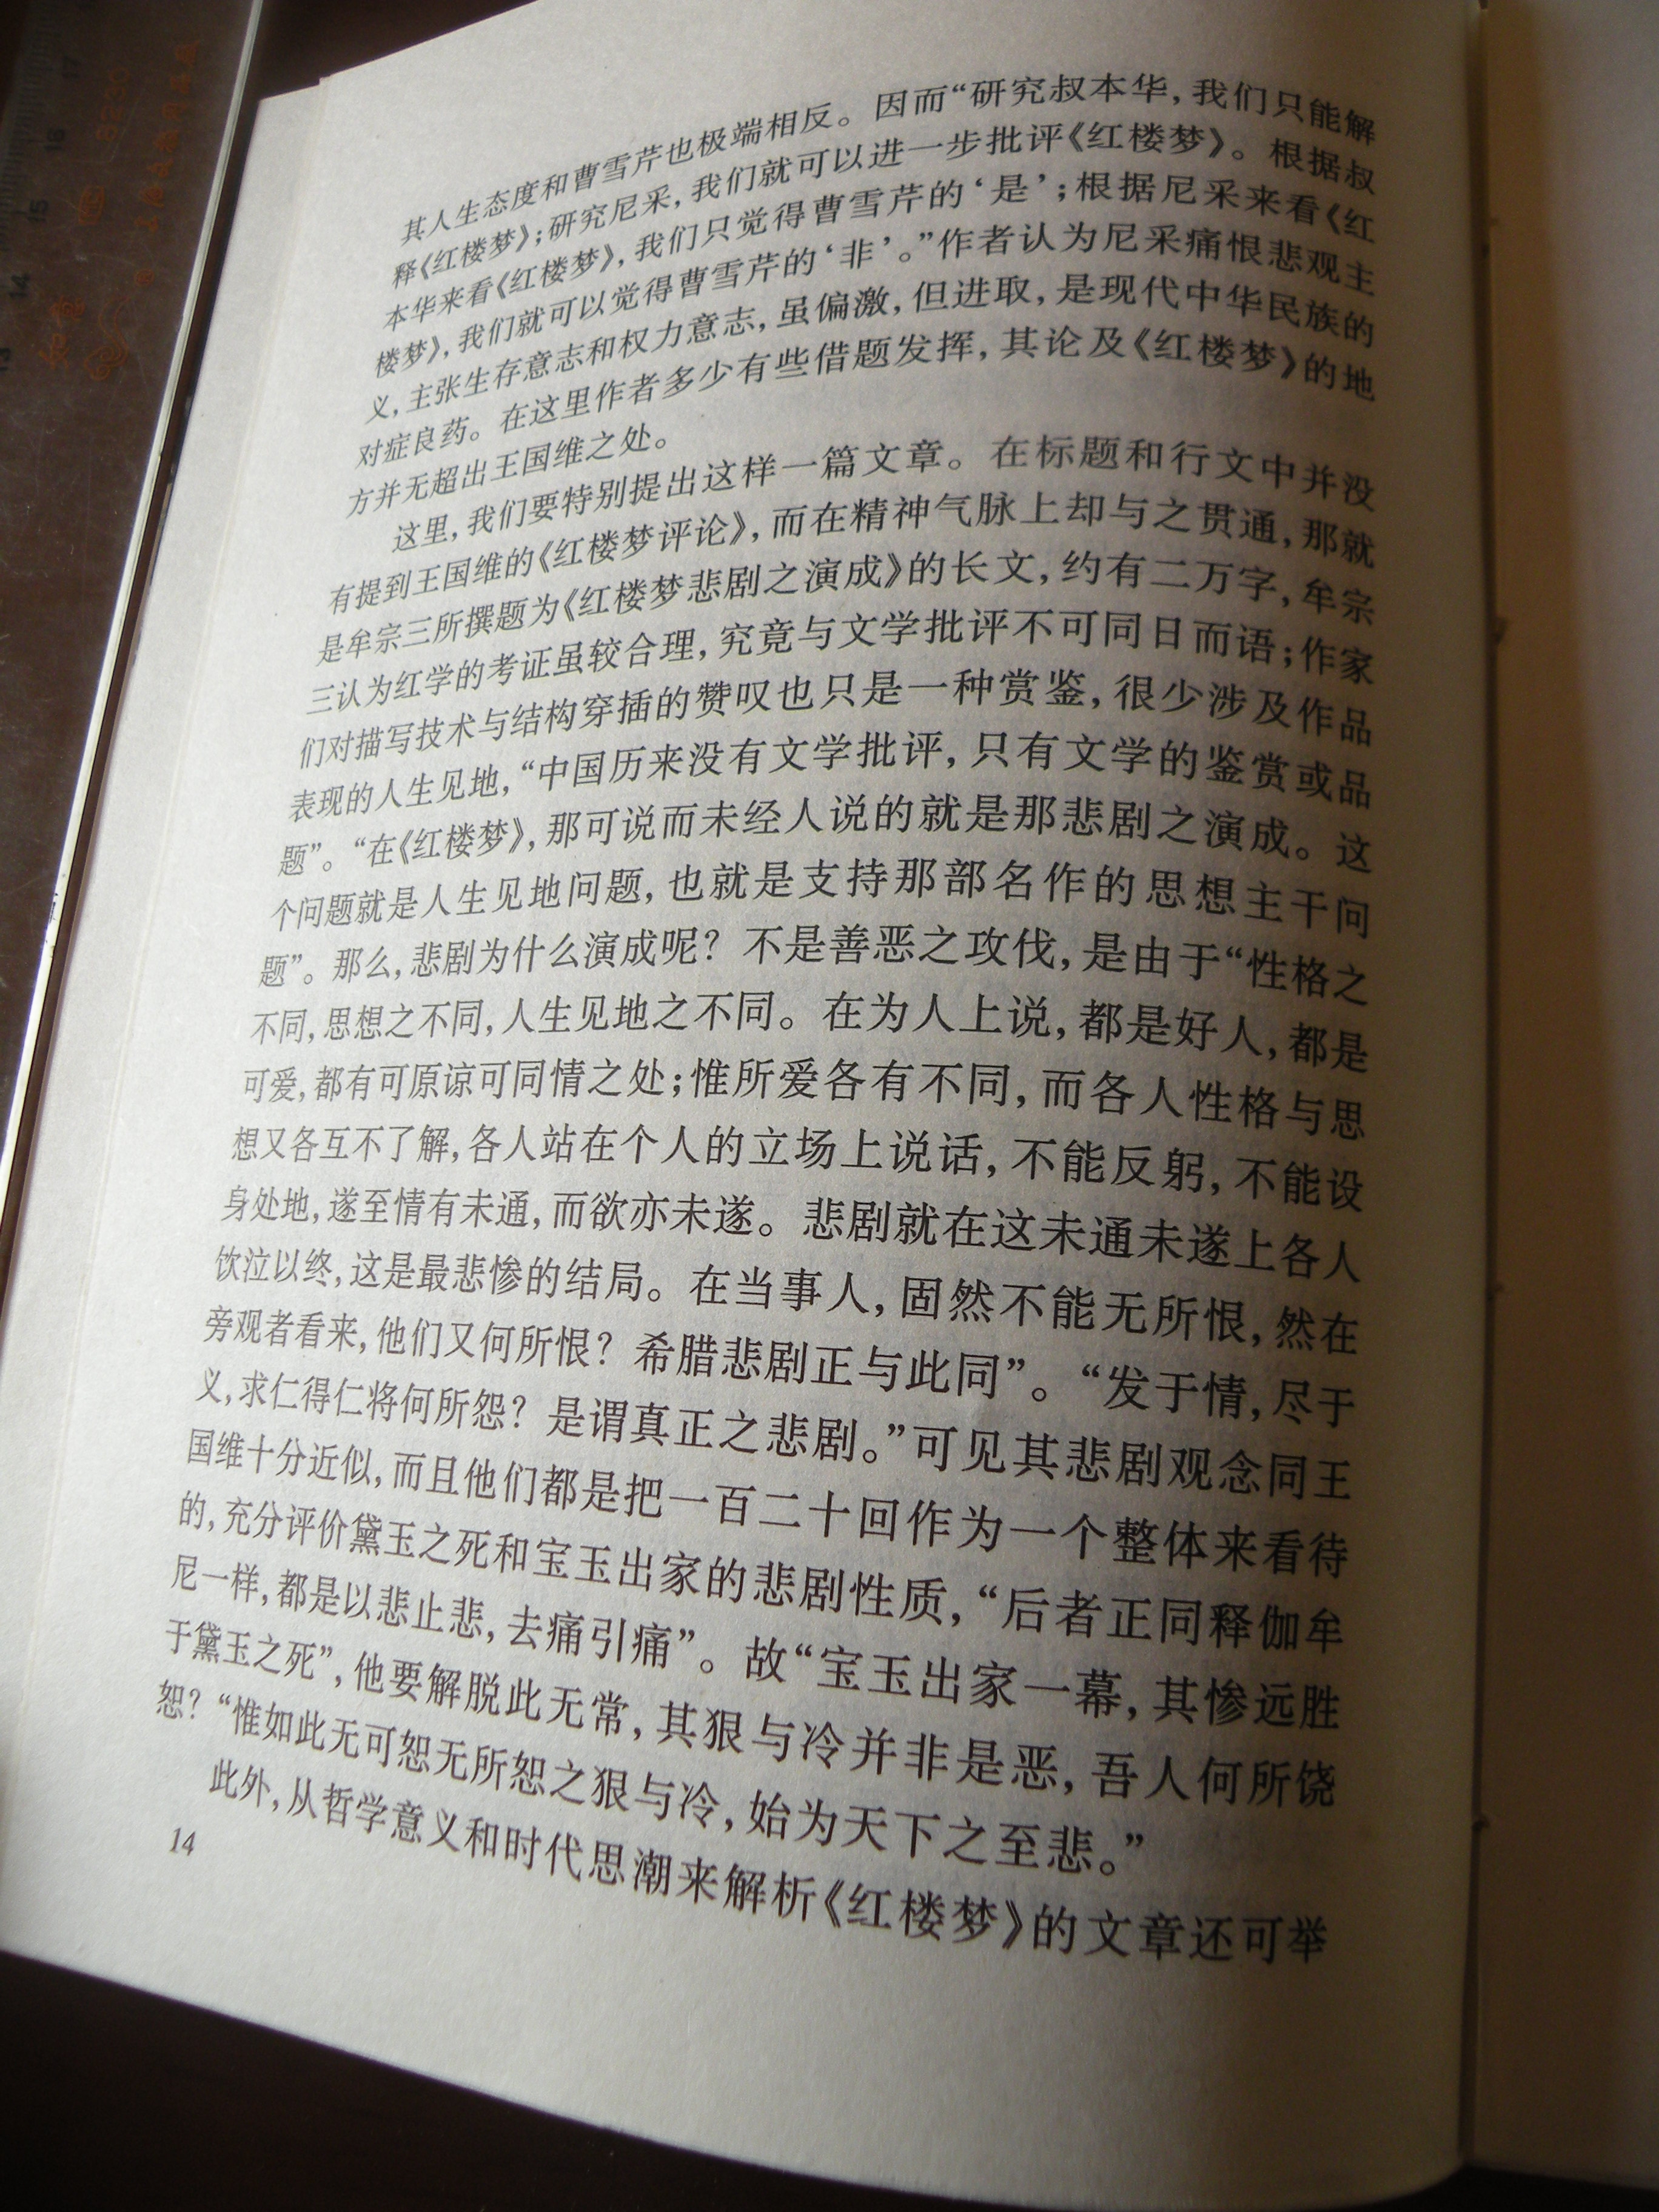 其人生态度和曹雪芹也极端相反。因而“研究叔本华，我们只能解
释《红楼梦》；研究尼采，我们就可以进一步批评《红楼梦》。根据叔
本华来看《红楼梦》，我们只觉得曹雪芹的‘是’；根据尼采来看《红
楼梦》，我们就可以觉得曹雪芹的‘非’。”作者认为尼采痛恨悲观主
义，主张生存意志和权力意志，虽偏激，但进取，是现代中华民族的
对症良药。在这里作者多少有些借题发挥，其论及《红楼梦》的地
方并无超出王国维之处。
这里，我们要特别提出这样一篇文章。在标题和行文中并没
有提到王国维的《红楼梦评论》，而在精神气脉上却与之贯通，那就
是牟宗三所撰题为《红楼梦悲剧之演成》的长文，约有二万字，牟宗
三认为红学的考证虽较合理，究竟与文学批评不可同日而语；作家
们对描写技术与结构穿插的赞叹也只是一种赏鉴，很少涉及作品
表现的人生见地，“中国历来没有文学批评，只有文学的鉴赏或品
题”。“在《红楼梦》，那可说而未经人说的就是那悲剧之演成。这
个问题就是人生见地问题，也就是支持那部名作的思想主干问
题”。那么，悲剧为什么演成呢？不是善恶之攻伐，是由于“性格之
不同，思想之不同，人生见地之不同。在为人上说，都是好人，都是
可爱，都有可原谅可同情之处；惟所爱各有不同，而各人性格与思
想又各互不了解，各人站在个人的立场上说话，不能反躬，不能设
身处地，遂至情有未通，而欲亦未遂。悲剧就在这未通未遂上各人
饮泣以终，这是最悲惨的结局。在当事人，固然不能无所恨，然在
旁观者看来，他们又何所恨？希腊悲剧正与此同”。“发于情，尽于
义，求仁得仁将何所怨？是谓真正之悲剧。”可见其悲剧观念同王
国维十分近似，而且他们都是把一百二十回作为一个整体来看待
的，充分评价黛玉之死和宝玉出家的悲剧性质，“后者正同释伽牟
尼一样，都是以悲止悲，去痛引痛”。故“宝玉出家一幕，其惨远胜
于黛玉之死”，他要解脱此无常，其狠与冷并非是恶，吾人何所饶
恕？“惟如此无可恕无所恕之狠与冷，始为天下之至悲。”
此外，从哲学意义和时代思潮来解析《红楼梦》的文章还可举
14
13
14
15
16
17